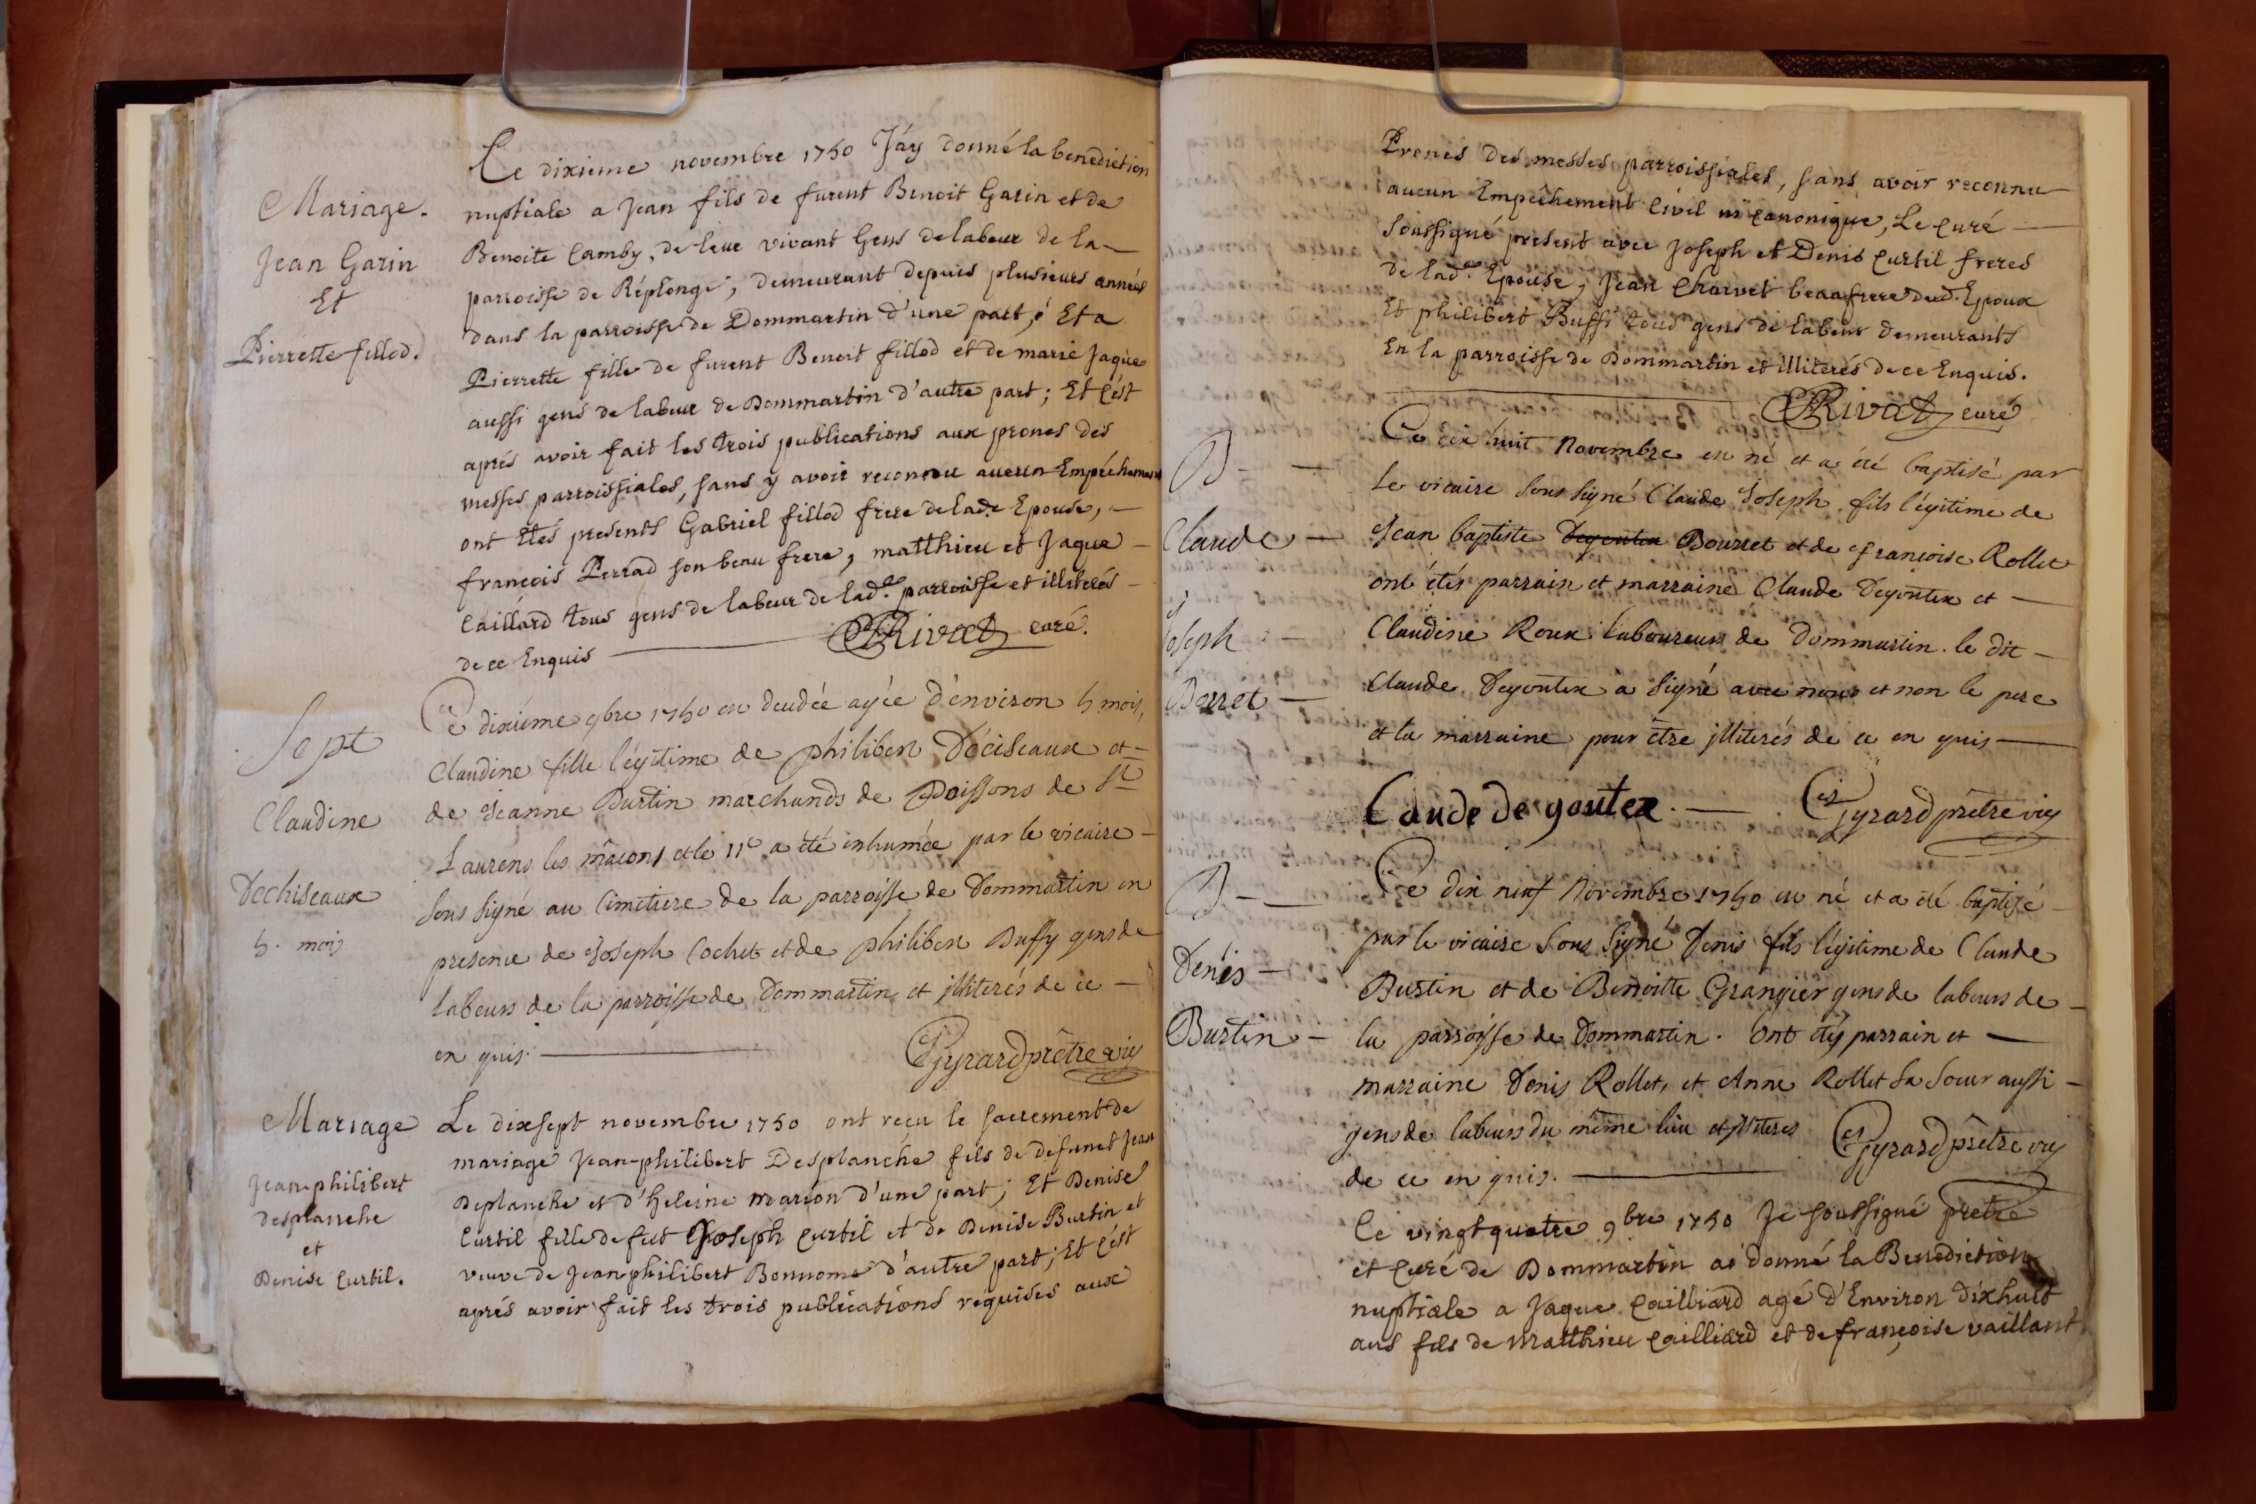 Mariage.
Jean Garin
Et
Pierrette fillod.
Ce dixieme novembre 1750 J'áy donné la benediction
nuptiale a Jean fils de furent Benoit Garin et de
Benoite Camby, de leur vivant Gens de labeur de la
parroisse de Réplongé, demeurant depuis plusieurs années
dans la parroisse de Dommartin d'une part, Et a
Pierrette fille de furent Benoit fillod et de marie Jaque
aussi gens de labeur de Dommartin d'autre part; Et c'ést
aprés avoir fait les trois publications aux prones des
messes parroissiales, sans y avoir reconnu aucun Empéchement
ont étés presents Gabriel fillod frere de lade Epouse,
françois Perrad son beau frere, matthieu et Jaque
Caillard tous gens de labeur de lade. parroisse et illiterés
de ce Enquis Rivat curé.
Sept
Claudine
Dechiseaux
5. mois
Ce dixieme 9bre 1750 en deudée agée d'environ 5 mois,
Claudine fille légitime de philibert Déciseaux et
de Jeanne Burtin marchands de Poissons de St
Laurens les mâcons et le 11e a été inhumée par le vicaire
sous signé au cimetiere de la parroisse de Dommartin en
presence de Joseph Cochet et de philibert Buffy gens de
labeurs de la parroisse de Dommartin et illiterés de ce
en quis. Gyrard prêtre vic
Mariage
Jean philibert
desplanche
et
Denise Curtil.
Le dixsept novembre 1750 ont reçu le sacrement de
mariage Jean-philibert Desplanche fils de defunct Jean
Deplanche et d'heleine marion d'une part; Et Denise
Curtil fille de fut Joseph Curtil et de Denise Burtin et
veuve de Jean philibert Bonnome d'autre part; Et c'ést
aprés avoir fait les trois publications requises aux
Prones des messes parroissiales, sans avoir reconnu
aucun Empêchement civil ni canonique, Le curé
soussigné present avec Joseph et Denis Curtil freres
de lade. Epouse, Jean Charvet beaufrere dud. Epoux
Et philibert Buffi tous gens de labeur demeurants
En la parroisse de Dommartin et illiterés de ce Enquis.
Rivat curé
B
Claude
Joseph
Borret
Ce dix huit Novembre en né et a été baptisé par
le vicaire sous signé Claude Joseph fils légitime de
Jean baptiste Degoutex Bourret et de francoise Rollet
ont étés parrain et marraine Claude Degoutex et
Claudine Roux laboureurs de Dommartin. le dit
Claude Degoutex a signé avec nous et non le pere
et la marraine pour être illiterés de ce en quis
Caude de goutex Gyrard prêtre vic
B
Dénis
Burtin
Ce dix neuf Novembre 1750 en né et a été baptizé
par le vicaire sous signé Denis fils légitime de Claude
Burtin et de Benoitte Grangier gens de labeurs de
la parroisse de Dommartin. Ont étés parrain et
marraine Denis Rollet, et Anne Rollet sa soeur aussi
gens de labeurs du même lieu et illiteres
de ce en quis. Gyrard prêtre vic
Ce vingt quatre 9bre 1750 Je soussigné prêtre
et curé de Dommartin ai donné la Benediction
nuptiale a Jaque Cailliard agé d'Environ dixhuit
ans fils de Matthieu Cailliard et de françoise vaillant